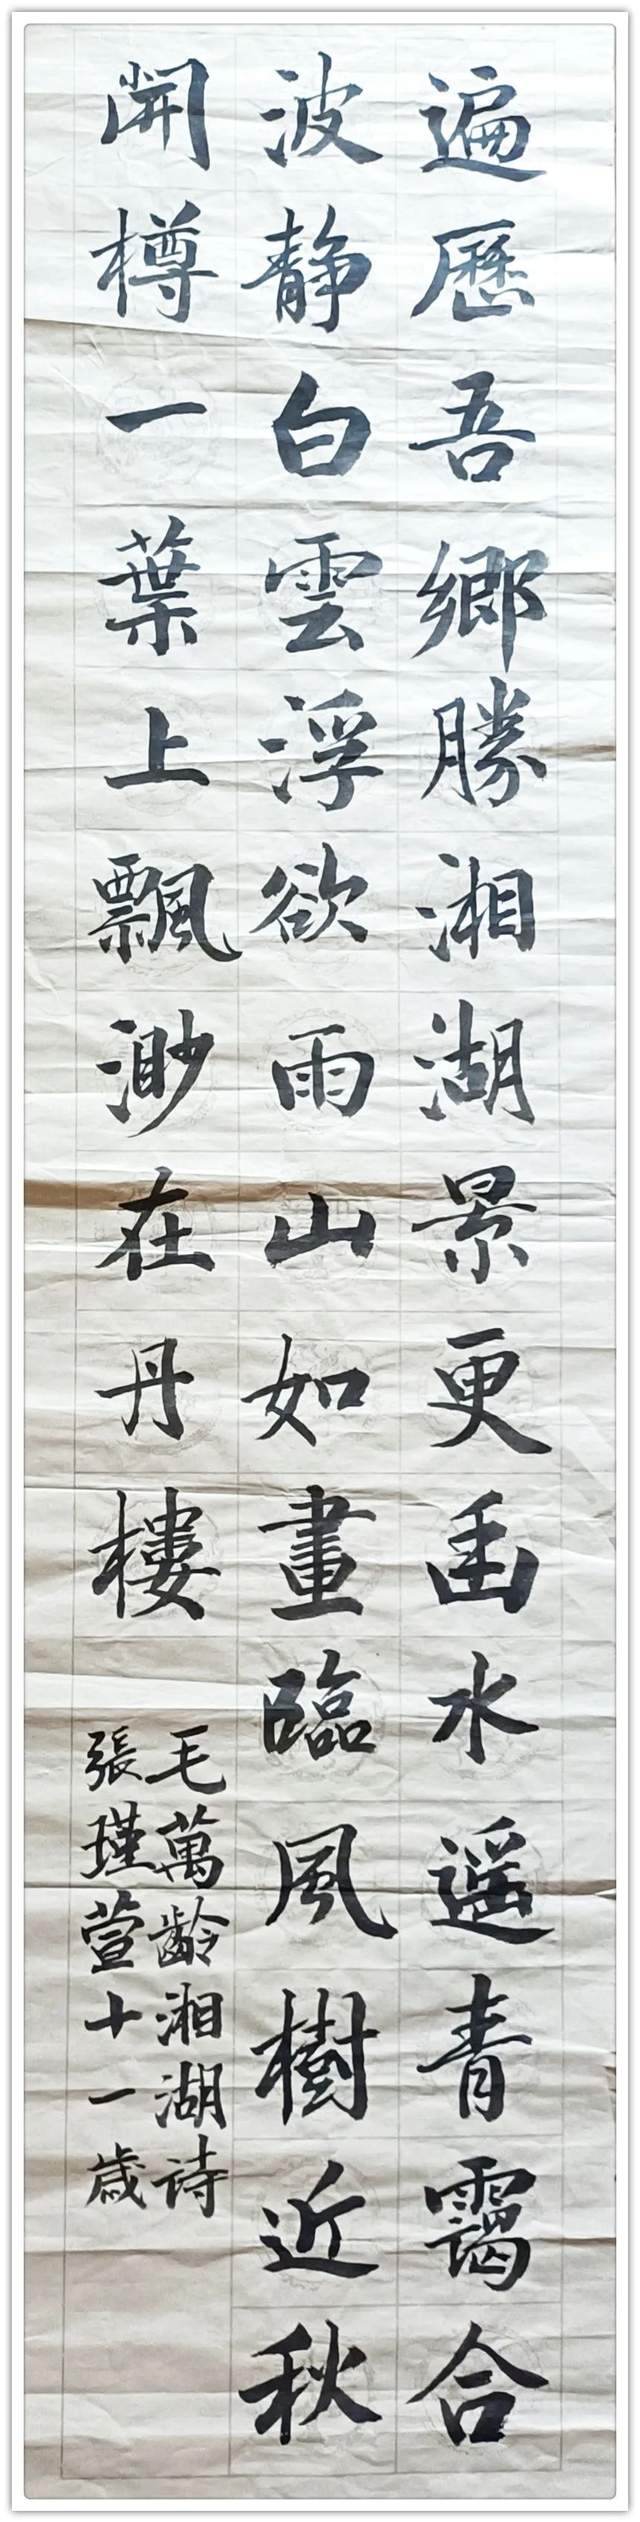 遍歷吾鄉勝湘湖景更幽水遥青靄合
波静白雲浮欲雨山如畫臨風樹近秋
開樽一葉上飄渺在丹樓
毛萬齡湘湖诗
張瑾萱十一歲